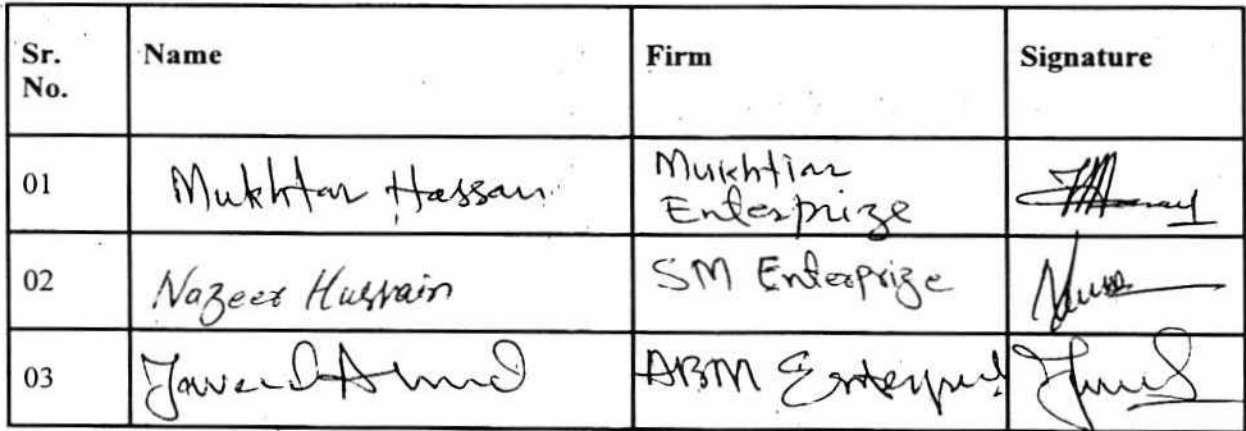 Sr. No. Name Firm Signature
01 Mukhtar Hassan Mukhtiar Enterprize
02 Nazeer Hussain SM Enterprize
03 Javed ABM